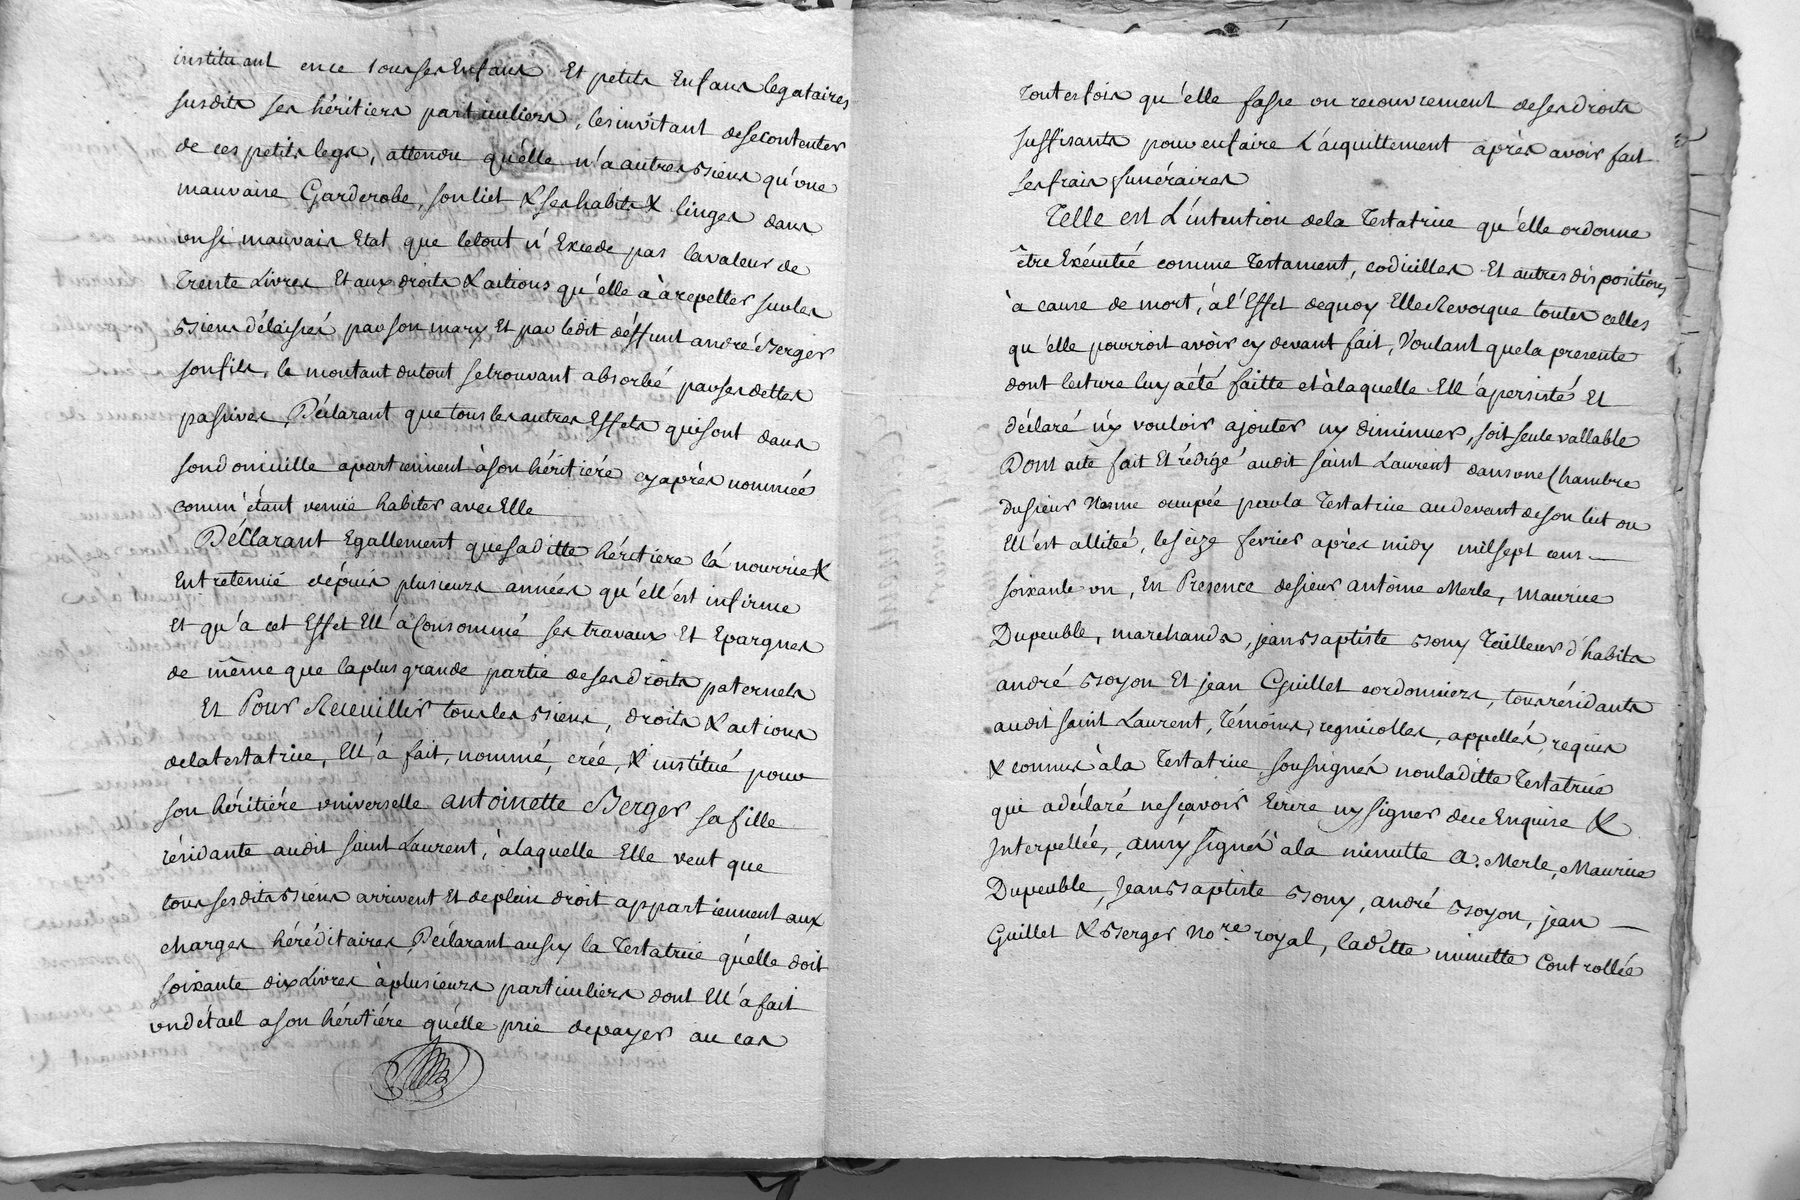 instituant en ce tous ses Enfans Et petits Enfans legataires
susdits ses héritiers particuliers, les invitant de se contenter
de ces petits legs, attendu qu'elle n'a autres Biens qu'une
mauvaise Garderobe, son lict & ses habits & linges dans
un si mauvais Etat que le tout n'Excede pas la valeur de
Trente Livres Et aux droits & actions qu'elle a à repetter sur les
Biens délaissés par son mary Et par ledit déffunt andré Berger
son fils, le montant du tout se trouvant absorbé par ses dettes
passives, Déclarant que tous les autres Effets qui sont dans
son domicille apartiennent à son héritiére cy après nommée
comm'étant venüe habiter avec Elle
Déclarant Egallement que sa ditte héritiere l'a nourrie &
Entretenüe dépuis plusieurs années qu'ell'est infirme
Et qu'a cet Effet Ell'a Consommé ses travaux Et Epargnes
de même que la plus grande partie de ses droits paternels
Et Pour Receuillir tous les Biens, droits & actions
de la testatrice, Ell'a fait, nommé, créé, & institué pour
son héritiére universelle antoinette Berger sa fille
résidante audit saint Laurent, à laquelle Elle veut que
tous ses dits Biens arrivent Et de plein droit appartiennent aux
charges héréditaires, Déclarant aussy la Testatrice qu'elle doit
soixante dix Livres à plusieurs particuliers dont Ell'a fait
un détail a son héritiére qu'elle prie de payer au cas
toutes fois qu'elle fasse un recouvrement de ses droits
suffisants pour en faire L'acquittement après avoir fait
ses frais funéraires
Telle est L'intention de la Testatrice qu'elle ordonne
être Exécutée comme Testament, codicilles Et autres dispositions
à cause de mort, à l'Effet de quoy Elle Revocque toutes celles
qu'elle pourroit avoir cy devant fait, Voulant que la presente
dont lecture luy a été faitte et à laquelle Ell'a persisté Et
déclaré n'y vouloir ajouter ny diminuer, soit seule vallable
Dont acte fait Et rédigé audit saint Laurent dans une Chambre
du sieur Nesme ocupée par la Testatrice au devant de son lit ou
Ell'est allitée, le seize fevrier après midy mil sept cens
soixante un, En Presence de sieur antoine Merle, maurice
Dupeuble, marchands, jean Baptiste Bony Tailleur d'habits
andré Boyon Et jean Guillet cordonniers, tous résidants
audit saint Laurent, témoins, regnicolles, appellés, requis
& connus à la Testatrice, soussignés non laditte Testatrice
qui a déclaré ne sçavoir Ecrire ny signer de ce Enquise &
Interpellée, ainsy signés à la minutte A. Merle, Maurice
Dupeuble, Jean Baptiste Bony, andré Boyon, jean
Guillet & Berger No.re royal, laditte minutte Controllée